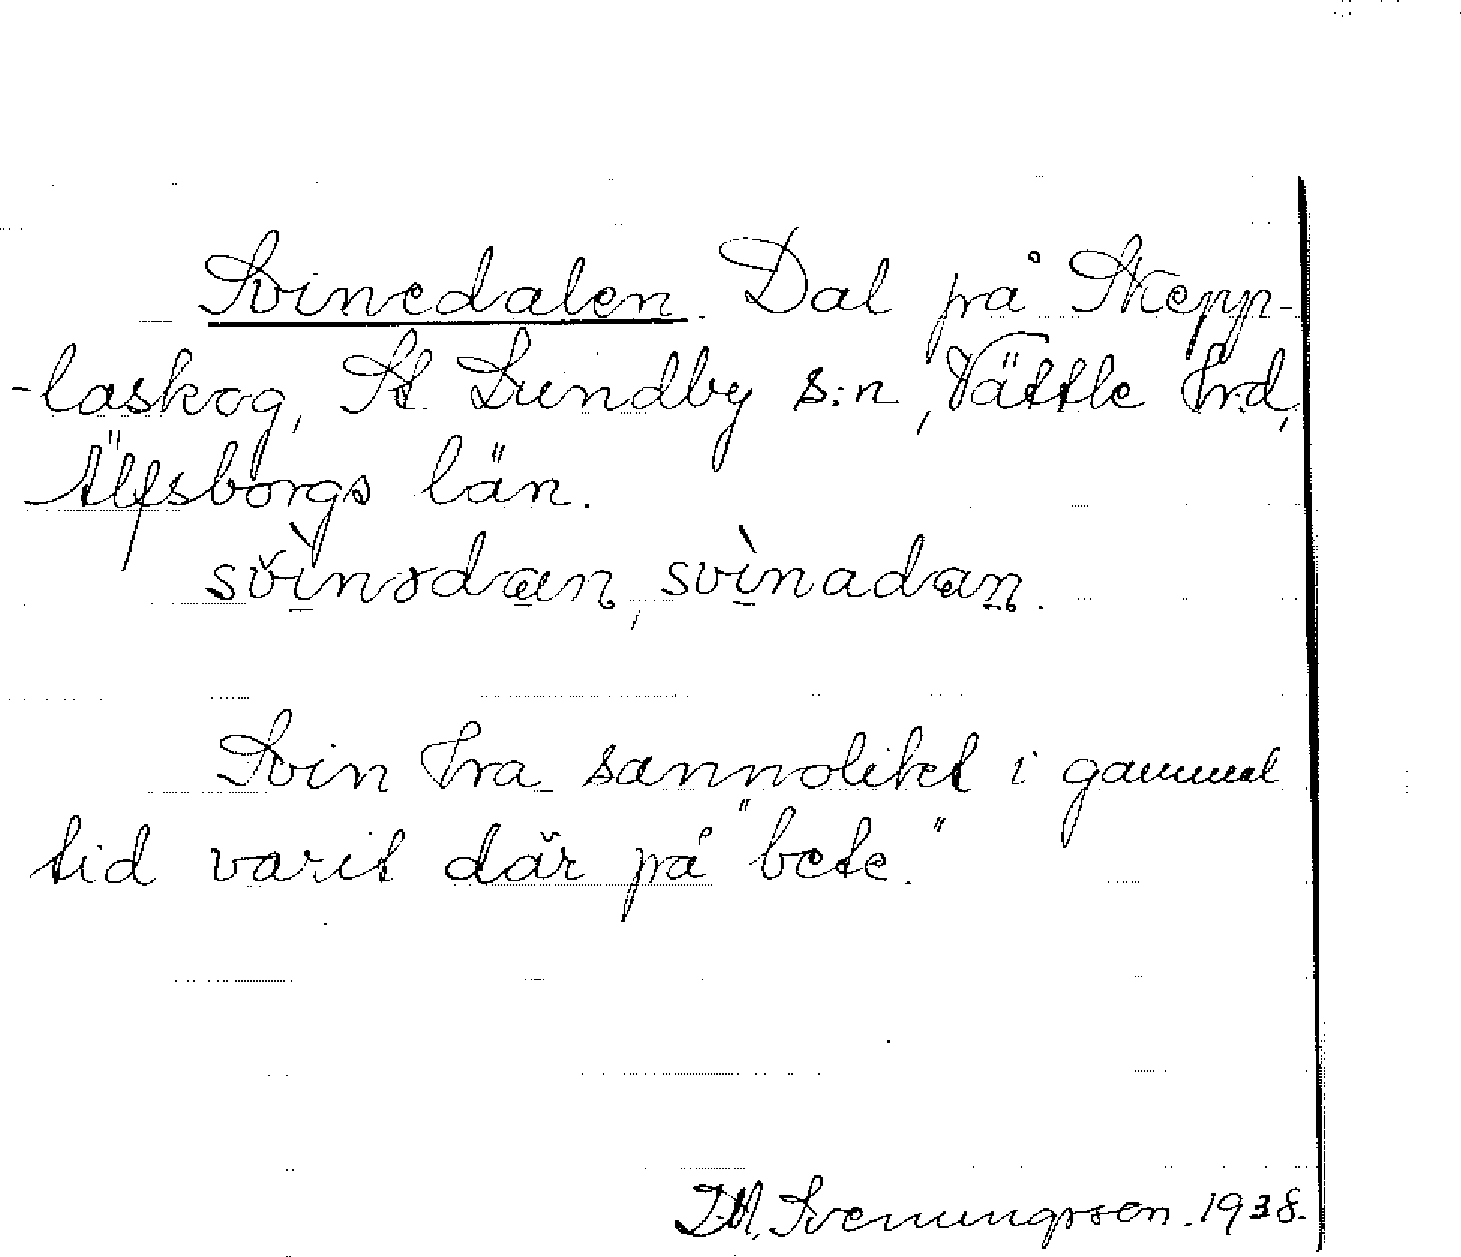 Svinedalen. Dal på Skepp-
-laskog, St. Lundby s:n, Vättle hrd,
Älfsborgs län.
svìnɤdan, svìnadan.
Svin hra sannolikt i gammal
tid varit där på "bete."
Svenungsson. 1938.